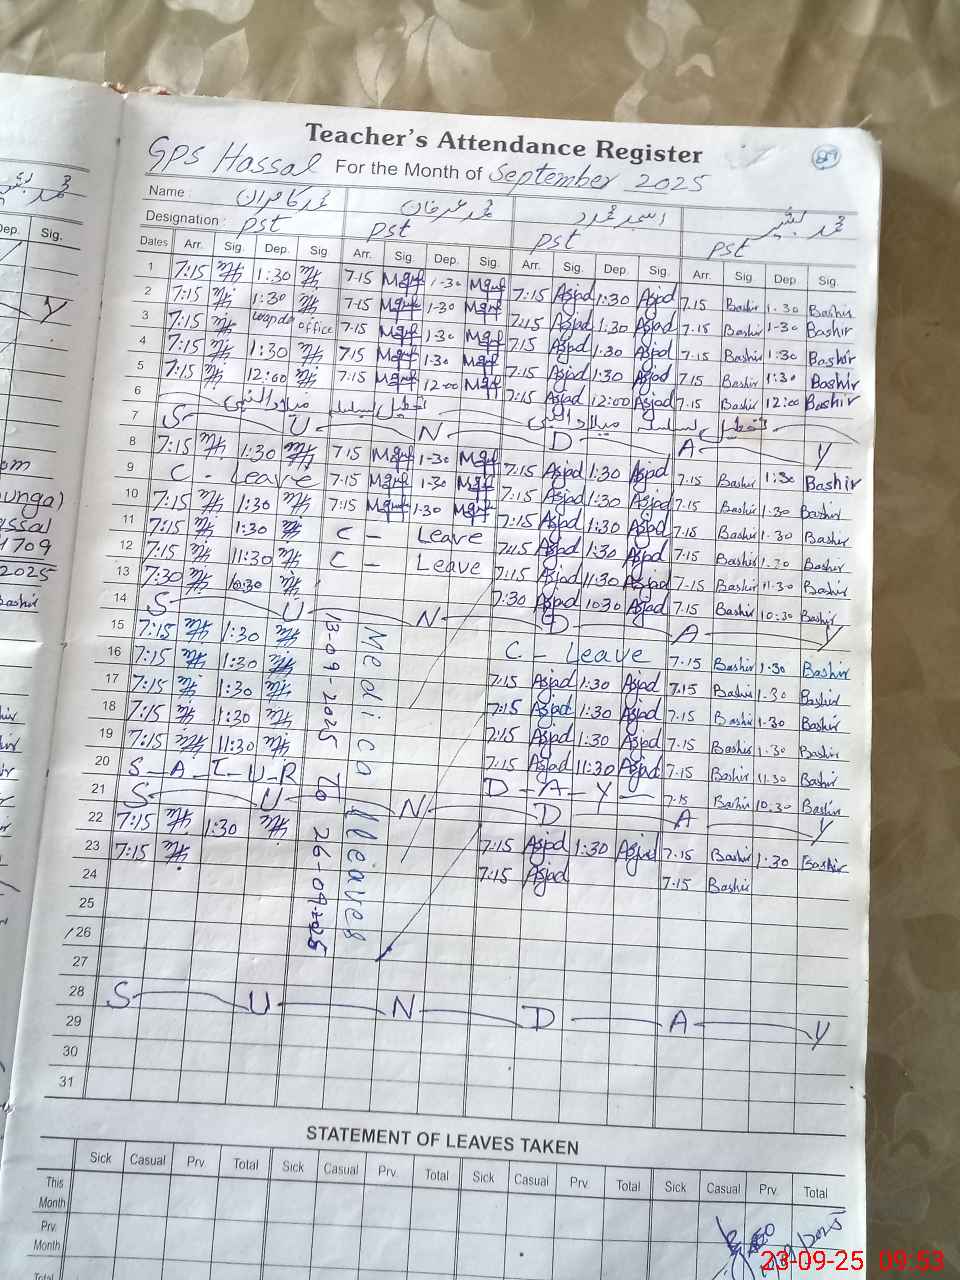 Teacher's Attendance Register
GPS Hassal For the Month of September 2025
Name : محمد کامران محمد عرفان اسجد محمود محمد بشیر
Designation : PST PST PST PST
Dates Arr. Sig. Dep. Sig. Arr. Sig. Dep. Sig. Arr. Sig. Dep. Sig. Arr. Sig. Dep. Sig.
1 7:15 1:30 7.15 1-30 7:15 Asjad 1:30 Asjad 7.15 Bashir 1.30 Bashir
2 7:15 1:30 7.15 1-30 7:15 Asjad 1:30 Asjad 7.15 Bashir 1-30 Bashir
3 7:15 wapda office 7:15 1-30 7:15 Asjad 1:30 Asjad 7.15 Bashir 1:30 Bashir
4 7:15 1:30 7:15 1-30 7:15 Asjad 1:30 Asjad 7.15 Bashir 1:30 Bashir
5 7:15 12:00 7:15 12-00 7:15 Asjad 12:00 Asjad 7.15 Bashir 12:00 Bashir
6 تعطیل بسلسلہ میلاد النبی تعطیل بسلسلہ میلاد النبی
7 S U N D A Y
8 7:15 1:30 7.15 1-30 7:15 Asjad 1:30 Asjad 7.15 Bashir 1:30 Bashir
9 C - Leave 7:15 1-30 7:15 Asjad 1:30 Asjad 7.15 Bashir 1.30 Bashir
10 7:15 1:30 7:15 1-30 7:15 Asjad 1:30 Asjad 7.15 Bashir 1.30 Bashir
11 7:15 1:30 C - Leave 7:15 Asjad 1:30 Asjad 7.15 Bashir 1.30 Bashir
12 7:15 11:30 C - Leave 7:15 Asjad 11:30 Asjad 7.15 Bashir 11.30 Bashir
13 7:30 10:30 7:30 Asjad 10:30 Asjad 7.15 Bashir 10:30 Bashir
14 S U N D A Y
15 7:15 1:30 C - Leave 7.15 Bashir 1:30 Bashir
16 7:15 1:30 7:15 Asjad 1:30 Asjad 7.15 Bashir 1.30 Bashir
17 7:15 1:30 7:15 Asjad 1:30 Asjad 7.15 Bashir 1.30 Bashir
18 7:15 1:30 7:15 Asjad 1:30 Asjad 7.15 Bashir 1.30 Bashir
19 7:15 11:30 7:15 Asjad 11:30 Asjad 7.15 Bashir 11.30 Bashir
20 S-A-T-U-R D-A-Y 7.15 Bashir 10:30 Bashir
21 S U N D A Y
22 7:15 1:30 7:15 Asjad 1:30 Asjad 7.15 Bashir 1.30 Bashir
23 7:15 7:15 Asjad 7.15 Bashir
24
25
26
27
28 S U N D A Y
29
30
31
Medical Leaves
13-09-2025 To 26-09-2025
STATEMENT OF LEAVES TAKEN
Sick Casual Prv. Total Sick Casual Prv. Total Sick Casual Prv. Total Sick Casual Prv. Total
This Month
Prv. Month
Total
23-09-25 09:53